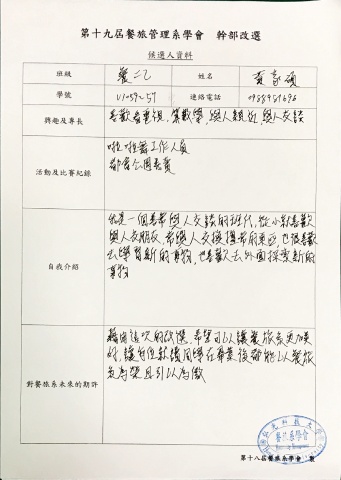 第十九屆餐旅管理系學會 幹部改選
候選人資料
班級 餐二乙 姓名
學號 連絡電話
興趣及專長 喜歡看電視,算數學,與人親近,與人交談
活動及比賽紀錄 啦啦舞工作人員
自我介紹 我是一個喜歡與人交談的 從小就喜歡
與人交朋友,喜歡與人交換 的東西,也很喜歡
去學習新的事物,也喜歡去外面探索新的
事物
對餐旅系未來的期許 藉由這次的改選,希望可以讓餐旅系更加美
好,讓 同學在畢業後都能以餐旅
系為榮且引以為傲
餐旅系學會
第十八屆餐旅系學會 製